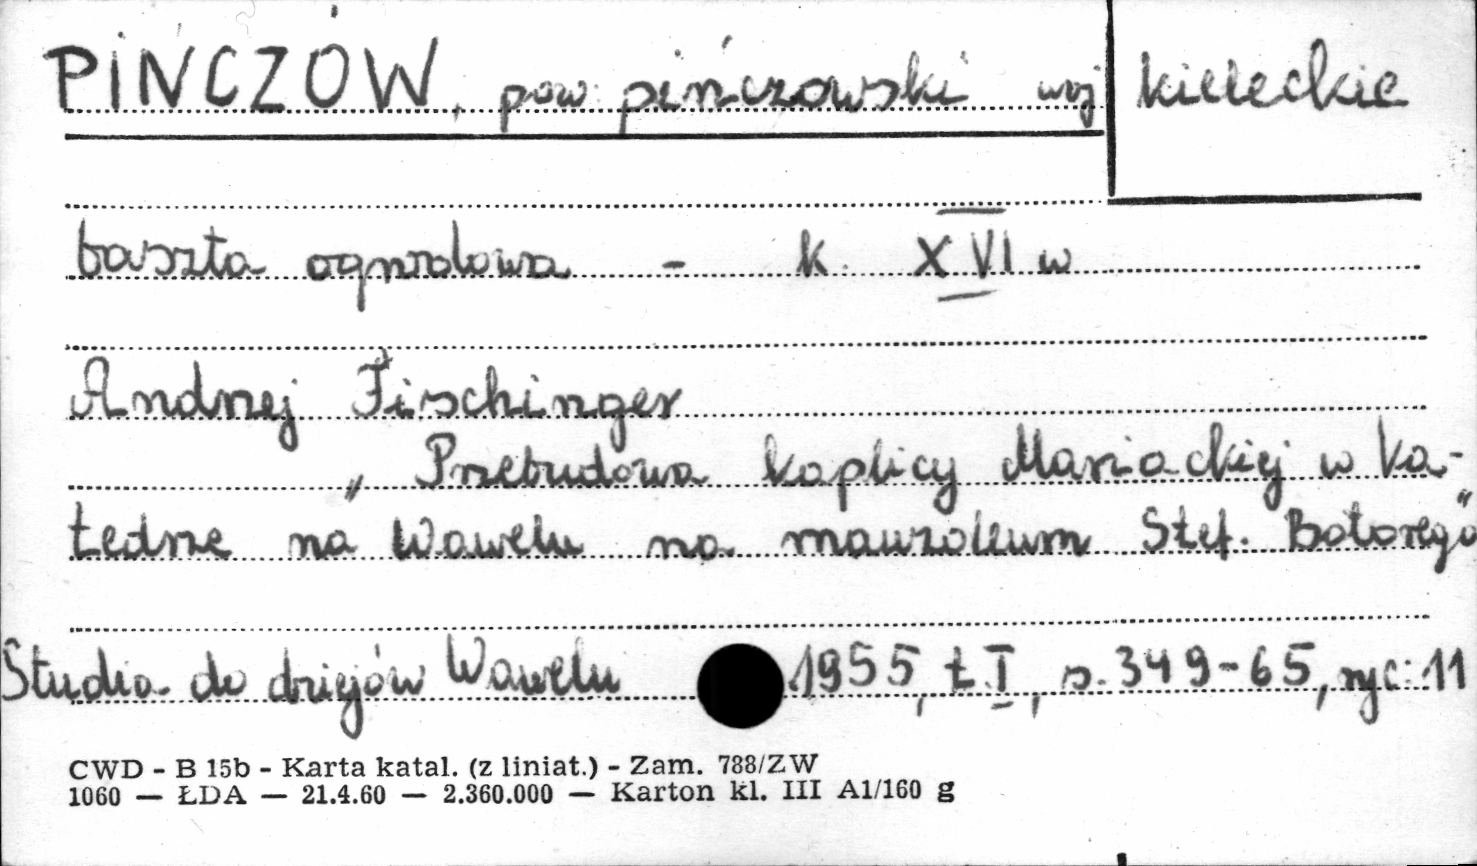 PIŃCZÓW, pow. pińczowski woj kieleckie
baszta ogrodowa - k. XVI w
Andrzej Fischinger
„Przebudowa kaplicy Mariackiej w ka-
tedrze na Wawelu na mauzoleum Stef. Batorego"
Studia do dziejów Wawelu 1955, t.I, s. 349-65, ryc: 11
CWD - B 15b - Karta katal. (z liniat.) - Zam. 788/ZW
1060 — ŁDA — 21.4.60 — 2.360.000 — Karton kl. III A1/160 g